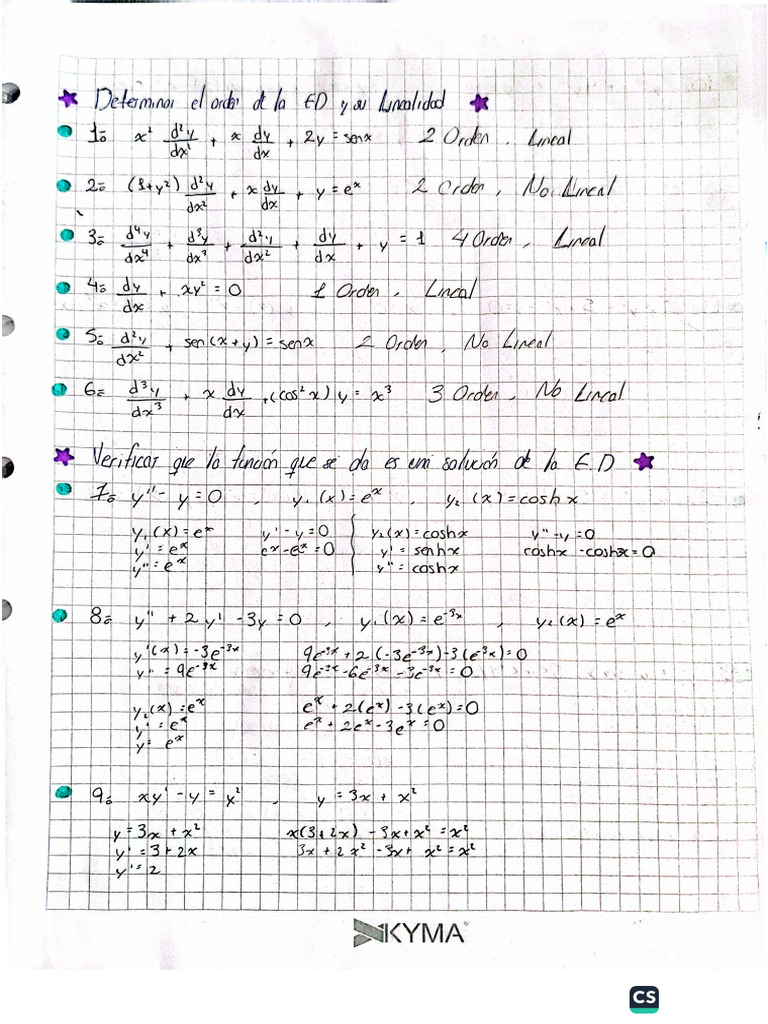 Determinar el orden de la ED y su Linealidad
1= x² d²y/dx² + x dy/dx + 2y = senx 2 Orden, Lineal
2= (1+y²) d²y/dx² + x dy/dx + y = eˣ 2 Orden, No Lineal
3= d⁴y/dx⁴ + d³y/dx³ + d²y/dx² + dy/dx + y = 1 4 Orden, Lineal
4= dy/dx + xy² = 0 1 Orden, Lineal
5= d²y/dx² + sen(x+y) = senx 2 Orden, No Lineal
6= d³y/dx³ + x dy/dx + (cos²x) y = x³ 3 Orden, No Lineal
Verificar que la función que se da es una solución de la E.D
7= y'' - y = 0 , y₁(x) = eˣ , y₂(x) = coshx
y₁(x) = eˣ y' - y = 0 y₂(x) = coshx y'' - y = 0
y' = eˣ eˣ - eˣ = 0 y' = senhx coshx - coshx = 0
y'' = eˣ y'' = coshx
8= y'' + 2y' - 3y = 0 , y₁(x) = e⁻³ˣ , y₂(x) = eˣ
y'(x) = -3e⁻³ˣ 9e⁻³ˣ + 2(-3e⁻³ˣ) - 3(e⁻³ˣ) = 0
y'' = 9e⁻³ˣ 9e⁻³ˣ - 6e⁻³ˣ - 3e⁻³ˣ = 0
y₂(x) = eˣ eˣ + 2(eˣ) - 3(eˣ) = 0
y' = eˣ eˣ + 2eˣ - 3eˣ = 0
y= eˣ
9= xy' - y = x² , y = 3x + x²
y = 3x + x² x(3+2x) - 3x + x² = x²
y' = 3 + 2x 3x + 2x² - 3x + x² = x²
y'' = 2
KYMA
CS